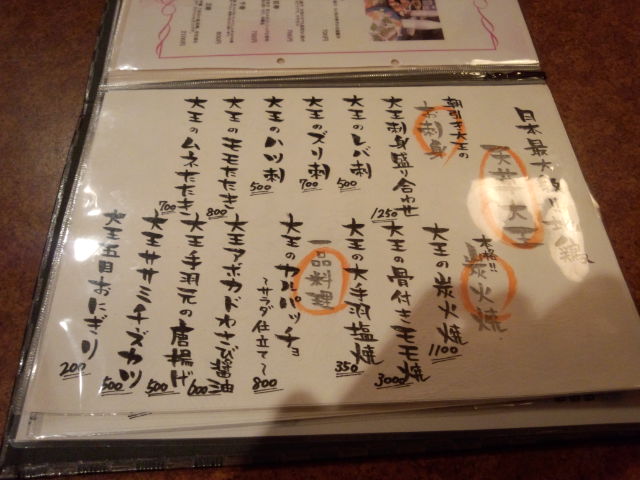 日本最大級地鶏
天草大王
朝引き大王の
お刺身
大王刺身盛り合わせ 1250
大王のレバ刺 500
大王のズリ刺 700
大王のハツ刺 500
大王のモモたたき 800
大王のムネたたき 700
本格!!
炭火焼
大王の炭火焼 1100
大王の骨付きモモ焼 3000
大王の大手羽塩焼 350
一品料理
大王のカルパッチョ
〜サラダ仕立て〜 800
大王アボカドわさび醤油 600
大王手羽元の唐揚げ 500
大王ササミチーズカツ 500
大王五目おにぎり 200